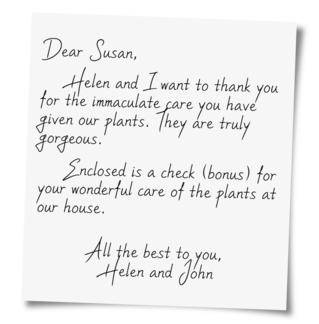 Dear Susan,
Helen and I want to thank you
for the immaculate care you have
given our plants. They are truly
gorgeous.
Enclosed is a check (bonus) for
your wonderful care of the plants at
our house.
All the best to you,
Helen and John